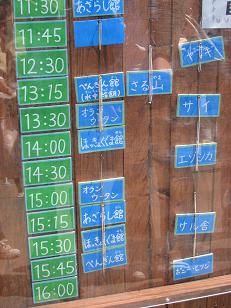 11:30 あざらし館
11:45
12:30 やぎ
13:15 ぺんぎん館 さる山
(水中給餌)
13:30 オランウータン サイ
14:00 ほっきょくぐま館
14:30 エゾシカ
15:00 オランウータン
15:15 あざらし館 サル舎
15:30 ほっきょくぐま館
15:45 ぺんぎん館 ポニー・ヒツジ
16:00